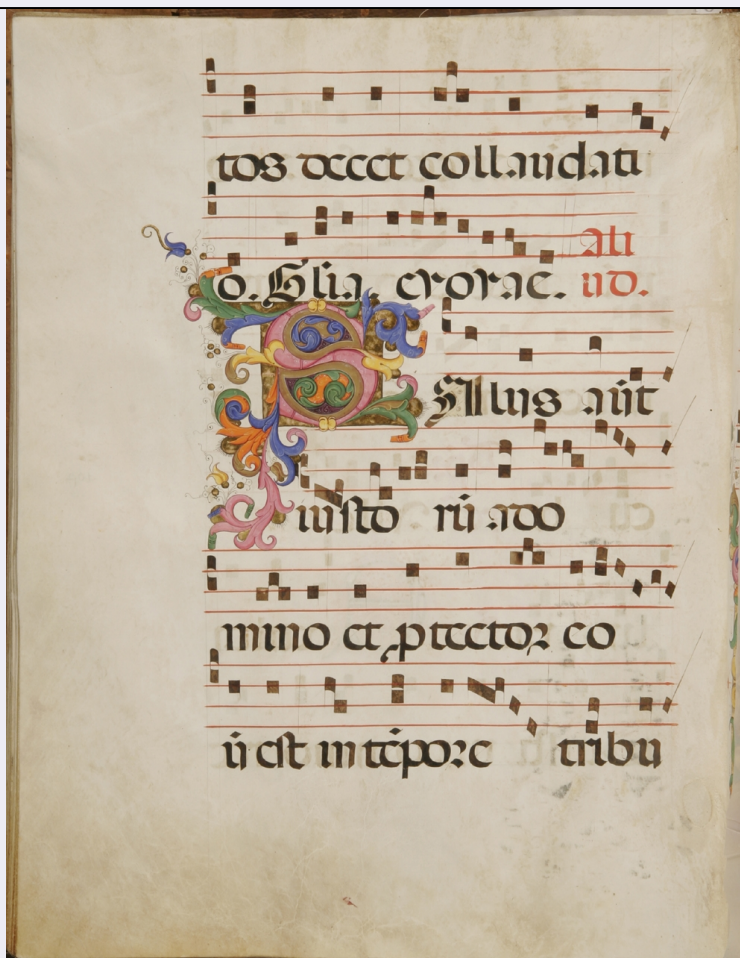 tos decet collaudati
Ali
o. Glīa. evovae. ud.
SAlus aūt
iusto rū a do
mino et ꝓtector eo
rū est in tēpore tribu